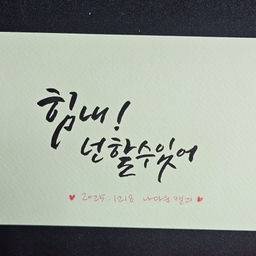 힘내!
넌할수있어
♥ 2025.12.18 나다운캘리 ♥